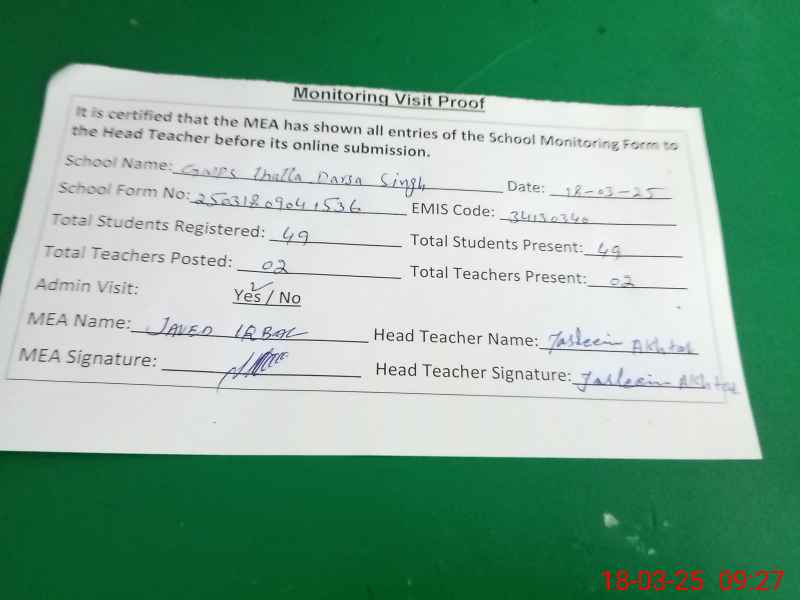 Monitoring Visit Proof
It is certified that the MEA has shown all entries of the School Monitoring Form to
the Head Teacher before its online submission.
School Name: GMPS Thatta Darsa Singh Date: 18-03-25
School Form No: 25031809041536 EMIS Code: 34130340
Total Students Registered: 49 Total Students Present: 49
Total Teachers Posted: 02 Total Teachers Present: 02
Admin Visit: Yes / No
MEA Name: JAVED IQBAL Head Teacher Name: Tasleem Akhtar
MEA Signature: Head Teacher Signature: Tasleem Akhtar
18-03-25 09:27